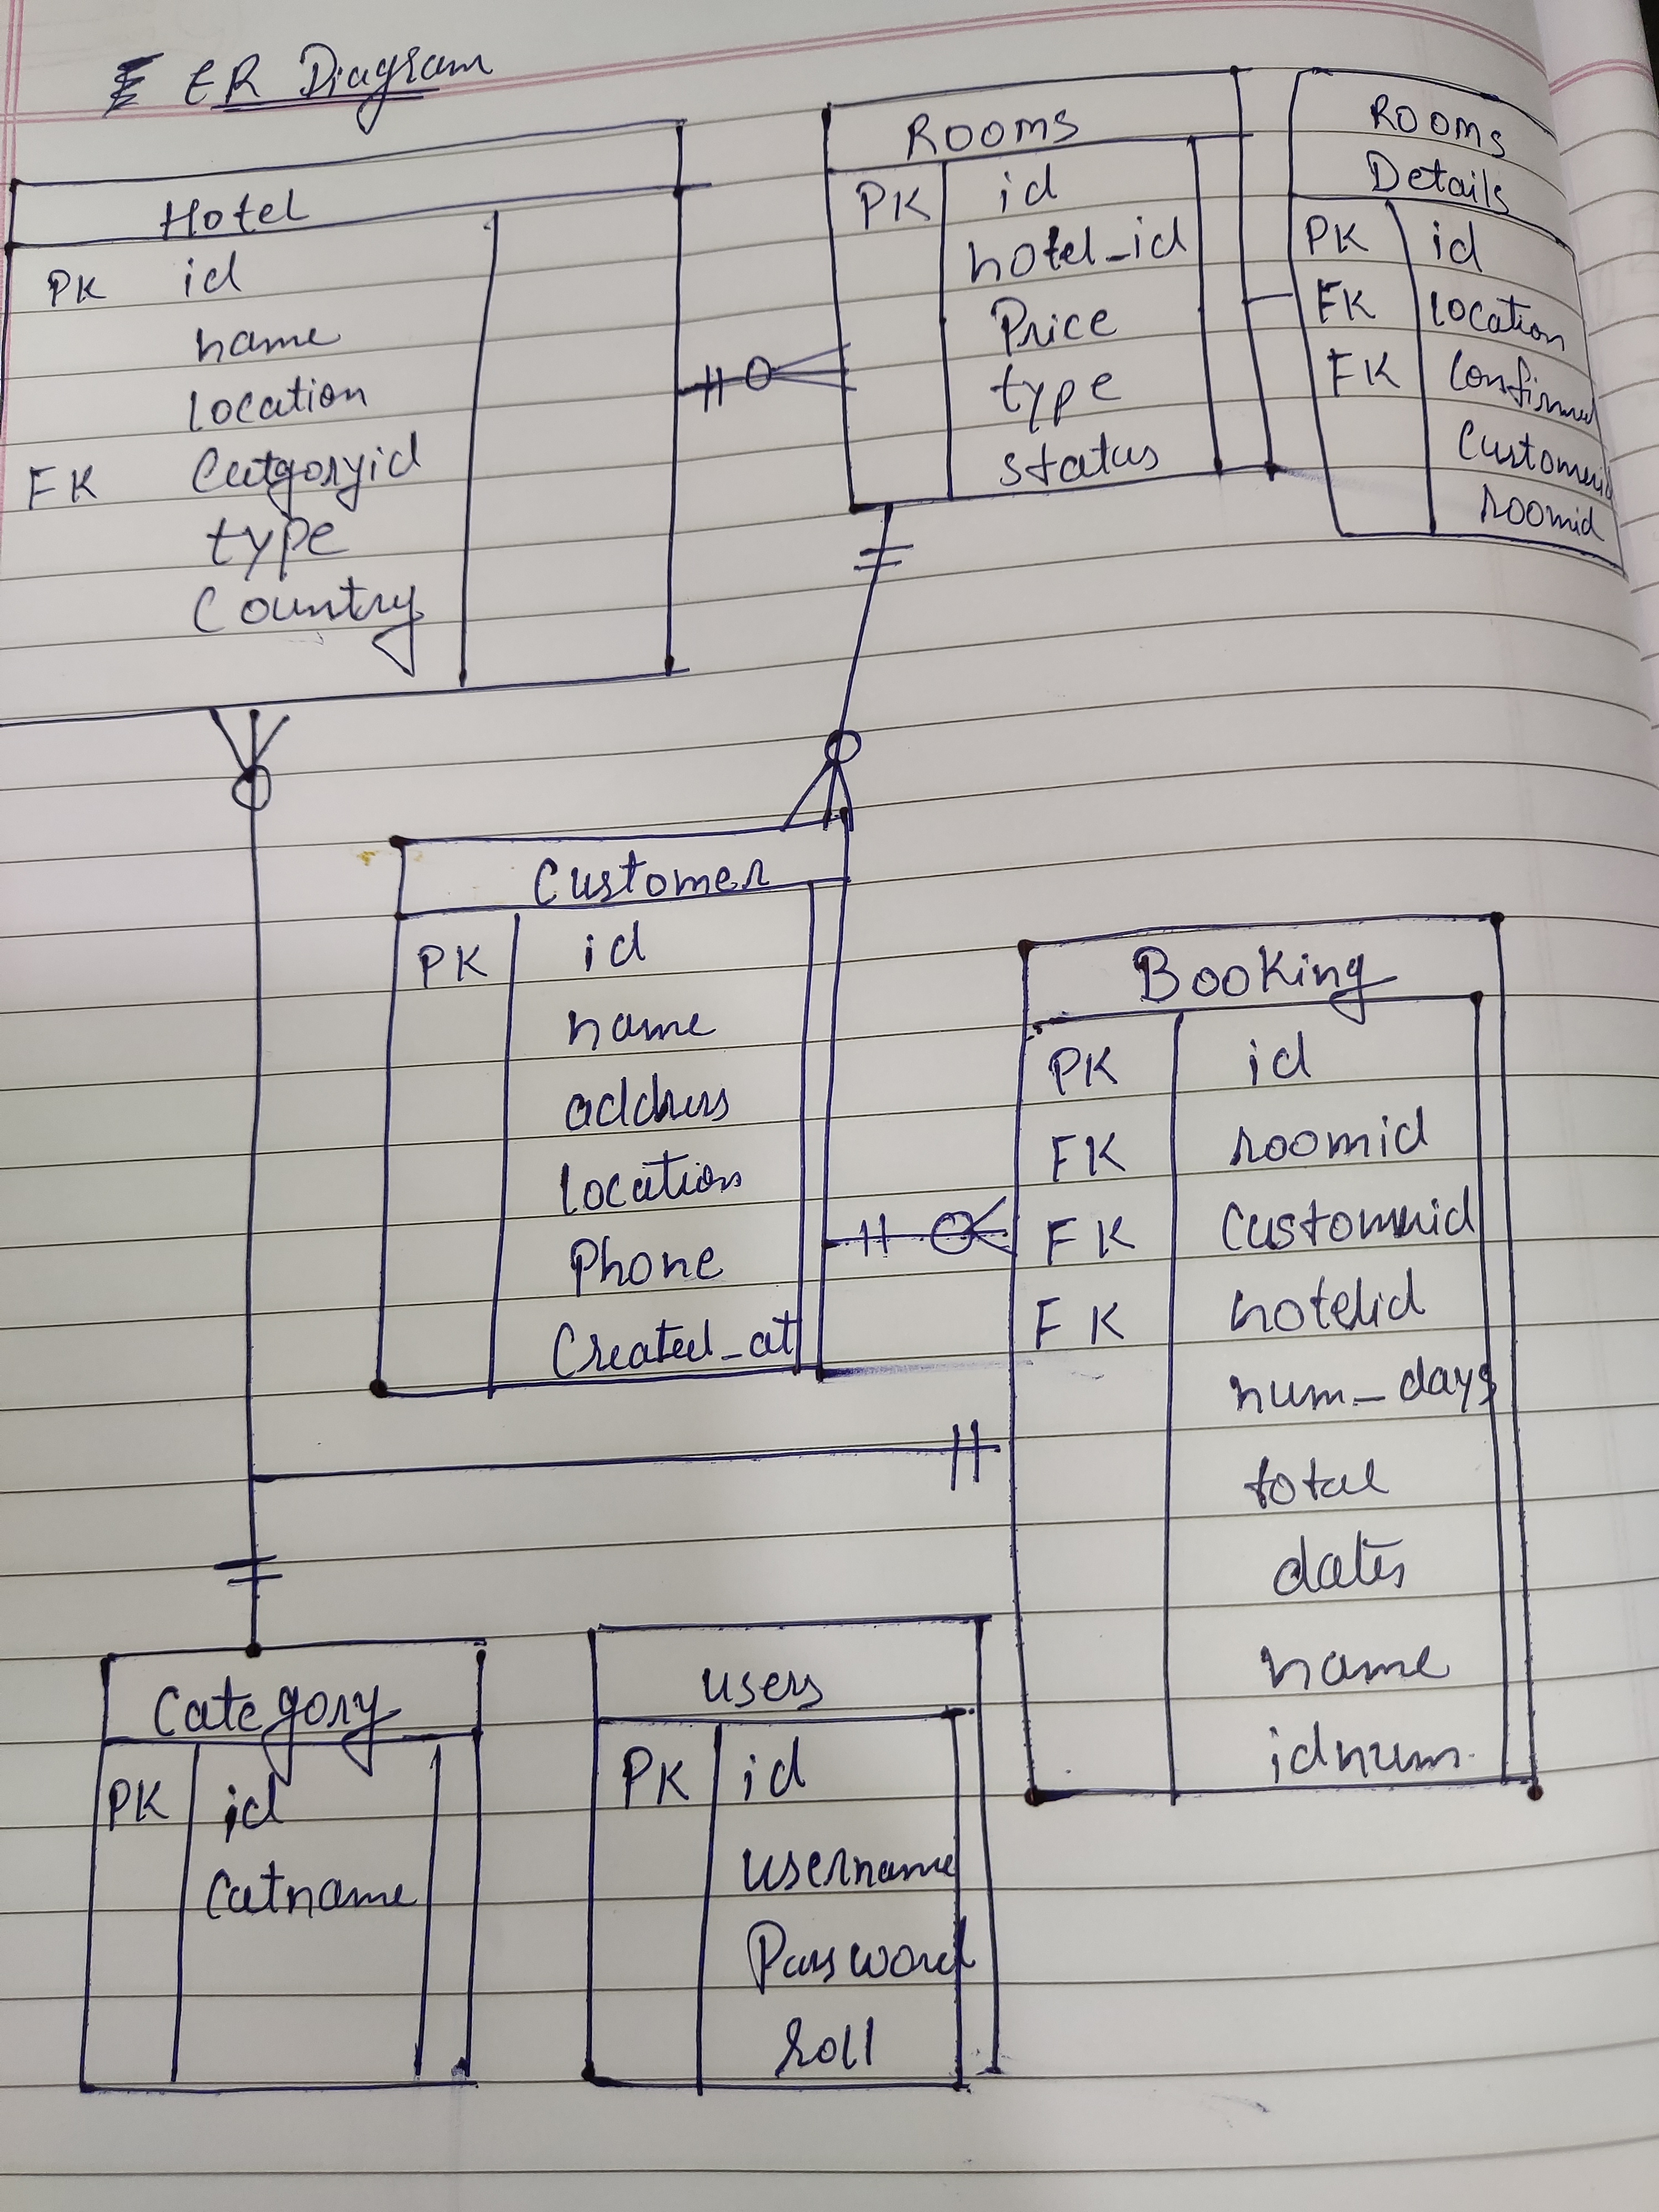 ER Diagram
Hotel
PK id
name
location
FK Catgoryid
type
Country
Rooms
PK id
hotel_id
Price
type
status
Rooms
Details
PK id
FK location
FK Confirmed
Customerid
roomid
Customer
PK id
name
address
location
Phone
Created_at
Booking
PK id
FK roomid
FK Customerid
FK hotelid
num_days
total
dates
name
idnum
Category
PK id
Catname
users
PK id
username
Password
roll